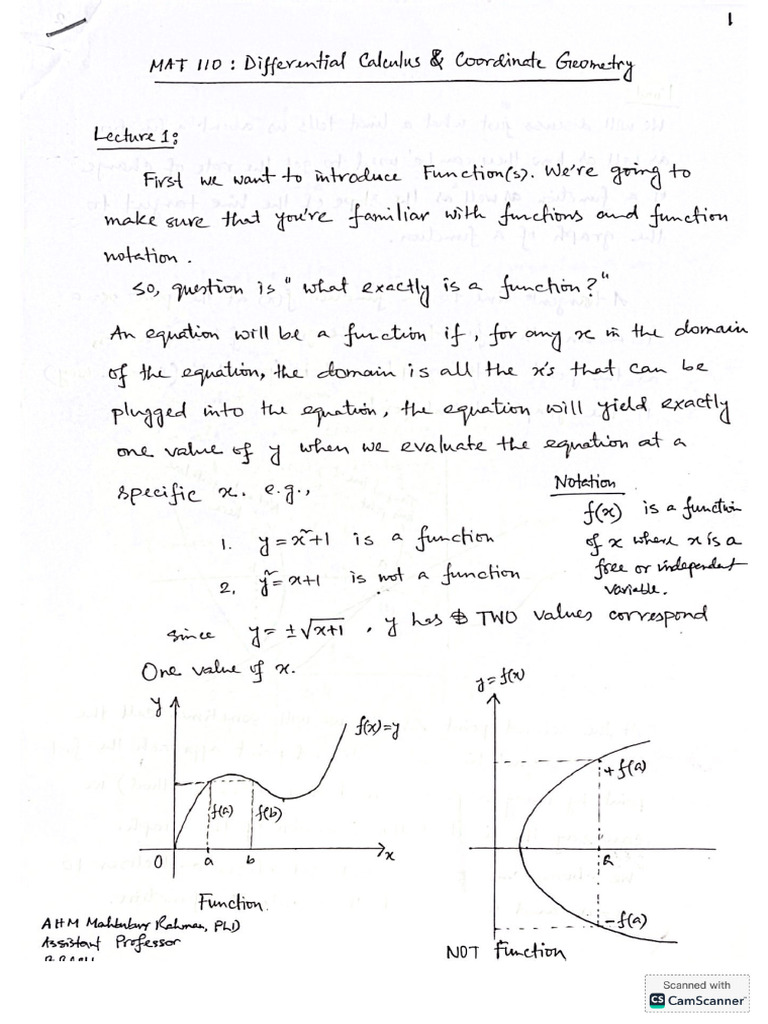 1
MAT 110 : Differential Calculus & Coordinate Geometry
Lecture 1:
First we want to introduce Function(s). We're going to
make sure that you're familiar with functions and function
notation.
So, question is "what exactly is a function?"
An equation will be a function if, for any x in the domain
of the equation, the domain is all the x's that can be
plugged into the equation, the equation will yield exactly
one value of y when we evaluate the equation at a
specific x. e.g.,
Notation
f(x) is a function
of x where x is a
free or independent
variable.
1. y = x²+1 is a function
2. y² = x+1 is not a function
since y = ±√x+1 , y has TWO values correspond
One value of x.
y
f(x)=y
f(a) f(b)
0 a b x
Function.
y = f(x)
+f(a)
a
-f(a)
NOT Function
AHM Rahman, PhD
Assistant Professor
Scanned with
CS CamScanner